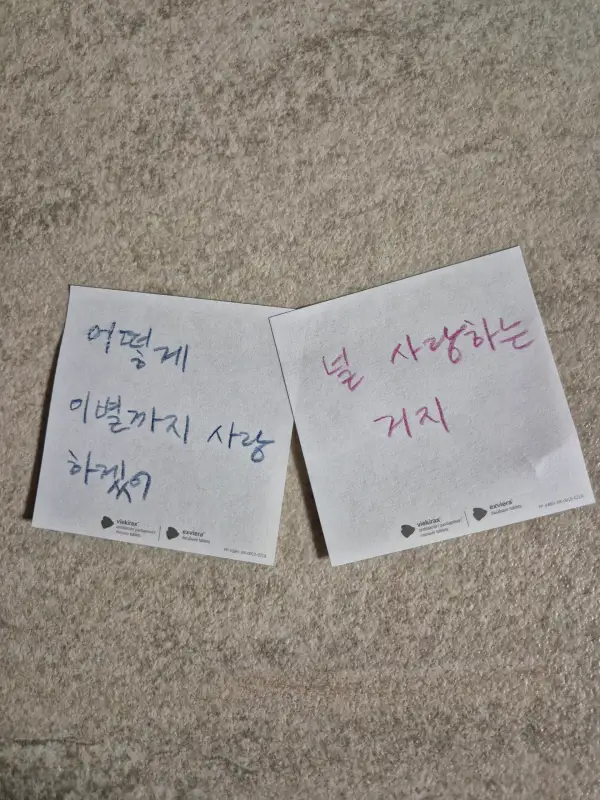 어떻게
이별까지 사랑
하겠어
viekirax
exviera
널 사랑하는
거지
viekirax
exviera